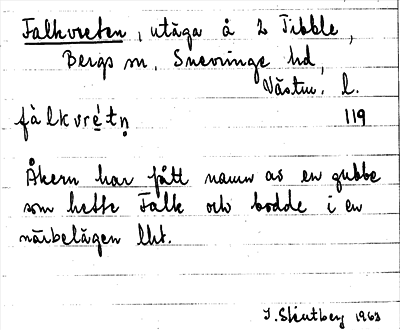 Falkvreten, utäga å 2 Tibble,
Bergs sn, Snevringe hd,
Västm. l.
fàlkvré̀tṇ 119
Åkern har fått namn av en gubbe
som hette Falk och bodde i en
närbelägen lht.
1963